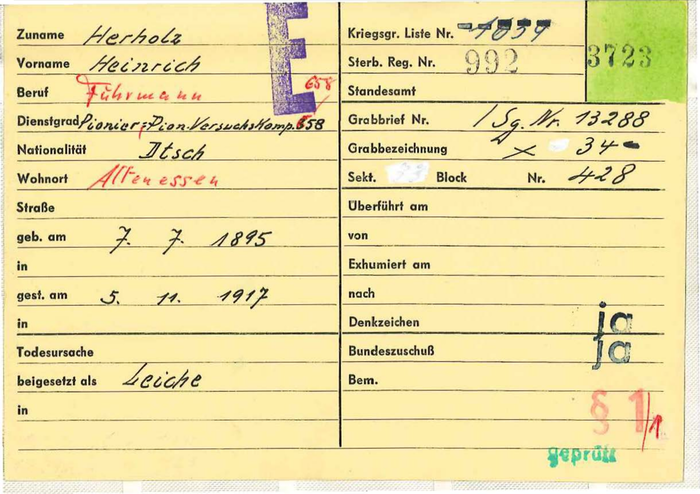 Zuname Herholz
Vorname Heinrich
Beruf Fuhrmann
658
Dienstgrad Pionier, Pion. Versuchskomp. 658
Nationalität Dtsch
Wohnort Altenessen
Straße
geb. am 7. 7. 1895
in
gest. am 5. 11. 1917
in
Todesursache
beigesetzt als Leiche
in
E
Kriegsgr. Liste Nr. 1039
Sterb. Reg. Nr. 992
3723
Standesamt
Grabbrief Nr. / Sg. Nr. 13288
Grabbezeichnung X 34
Sekt. Block Nr. 428
Überführt am
von
Exhumiert am
nach
Denkzeichen ja
Bundeszuschuß ja
Bem.
§ 1/1
geprüft